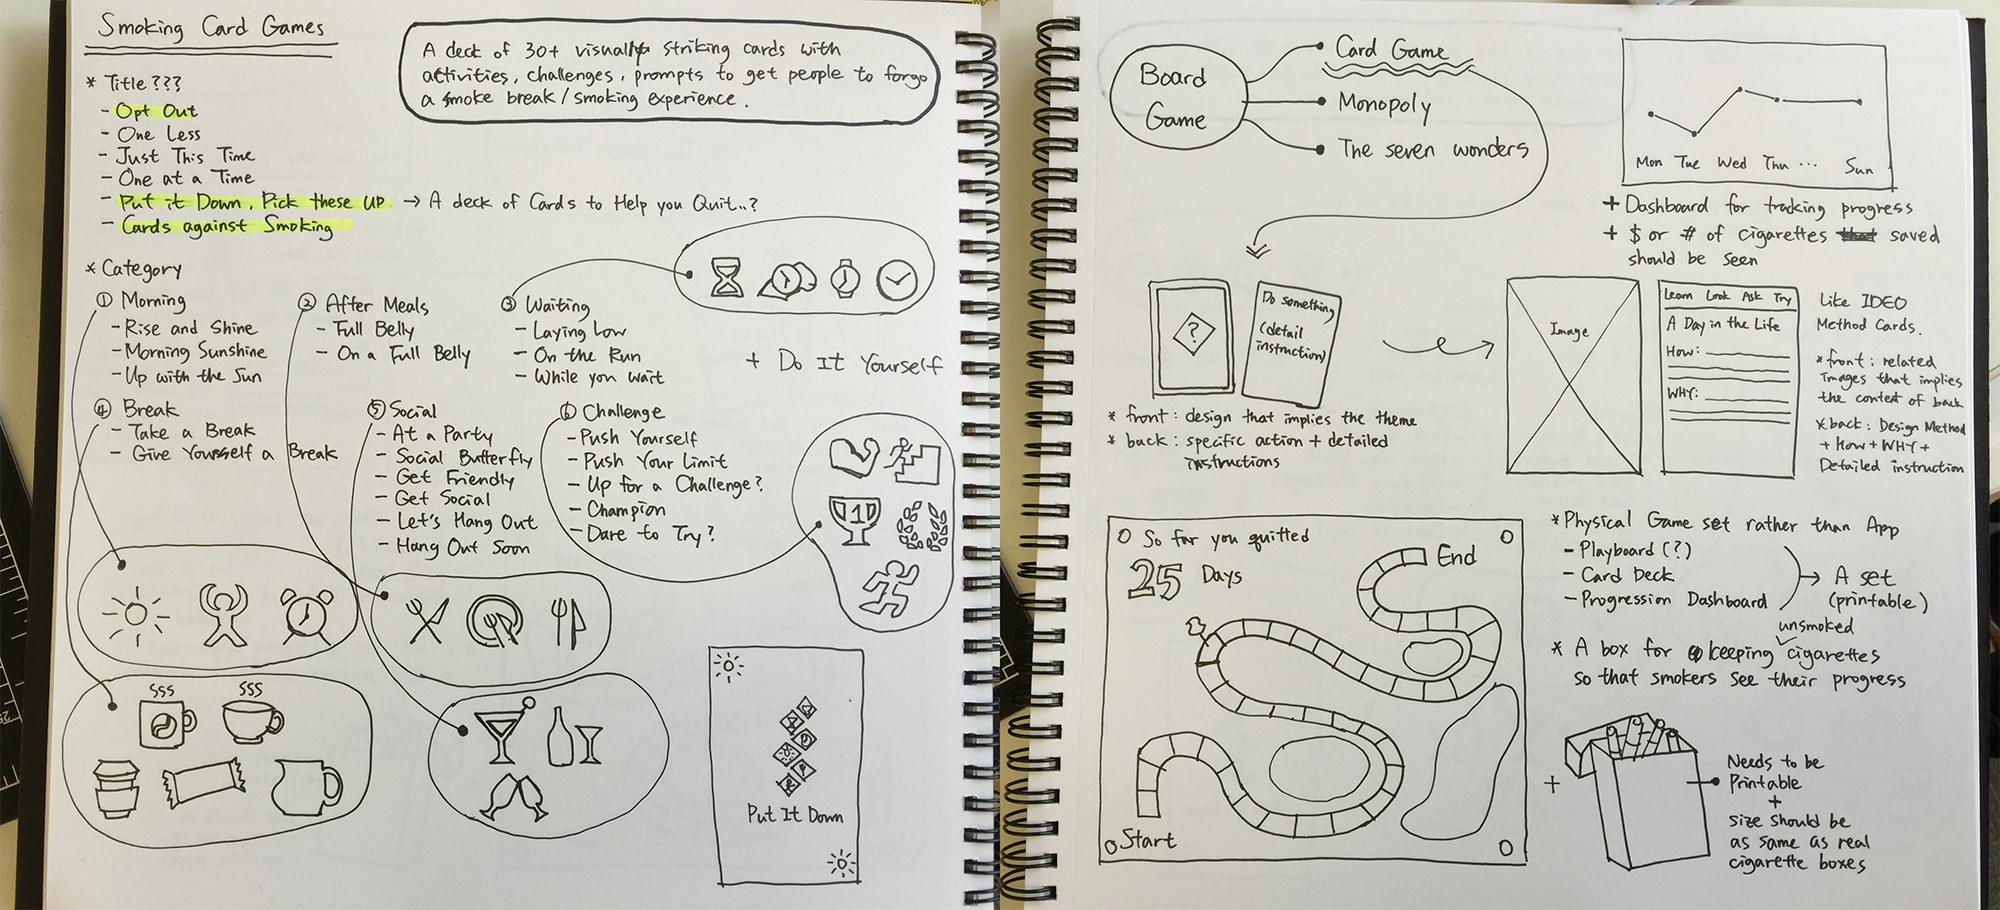 Smoking Card Games
A deck of 30+ visually striking cards with
activities, challenges, prompts to get people to forgo
a smoke break / smoking experience.
* Title???
- Opt Out
- One Less
- Just This Time
- One at a Time
- Put it Down, Pick these UP → A deck of Cards to Help you Quit..?
- Cards against Smoking
* Category
① Morning
- Rise and Shine
- Morning Sunshine
- Up with the Sun
② After Meals
- Full Belly
- On a Full Belly
③ Waiting
- Laying Low
- On the Run
- While you wait
+ Do It Yourself
④ Break
- Take a Break
- Give Yourself a Break
⑤ Social
- At a Party
- Social Butterfly
- Get Friendly
- Get Social
- Let's Hang Out
- Hang Out Soon
⑥ Challenge
- Push Yourself
- Push Your Limit
- Up for a Challenge?
- Champion
- Dare to Try?
1
sss sss
Put It Down
Board
Game
Card Game
Monopoly
The seven wonders
Mon Tue Wed Thu ... Sun
+ Dashboard for tracking progress
+ $ or # of cigarettes saved
should be seen
?
Do something
(detail
instruction)
* front : design that implies the theme
* back : specific action + detailed
instructions
Image
Learn Look Ask Try
A Day in the Life
How:
WHY:
Like IDEO
Method Cards.
* front : related
Images that implies
the content of back
* back : Design Method
+ How + WHY +
Detailed instruction
So far you quitted
25 Days
End
Start
* Physical Game set rather than App
- Playboard (?)
- Card Deck
- Progression Dashboard
→ A set
(printable)
unsmoked
* A box for keeping cigarettes
so that smokers see their progress
+
Needs to be
Printable
+
size should be
as same as real
cigarette boxes